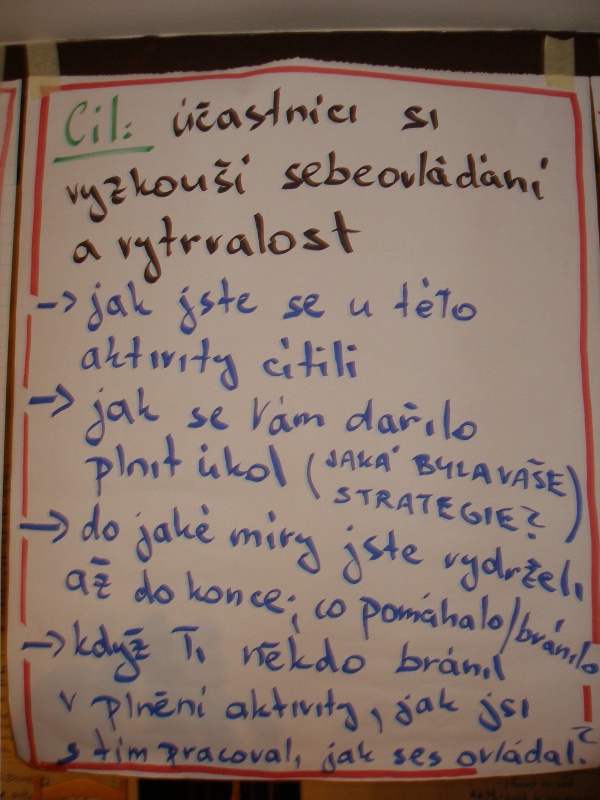 Cíl: účastníci si
vyzkouší sebeovládání
a vytrvalost
-> jak jste se u této
aktivity cítili
-> jak se Vám dařilo
plnit úkol (JAKÁ BYLA VAŠE
STRATEGIE?)
-> do jaké míry jste vydrželi
až do konce; co pomáhalo/bránilo
-> když Ti někdo bránil
v plnění aktivity, jak jsi
s tím pracoval, jak ses ovládal?